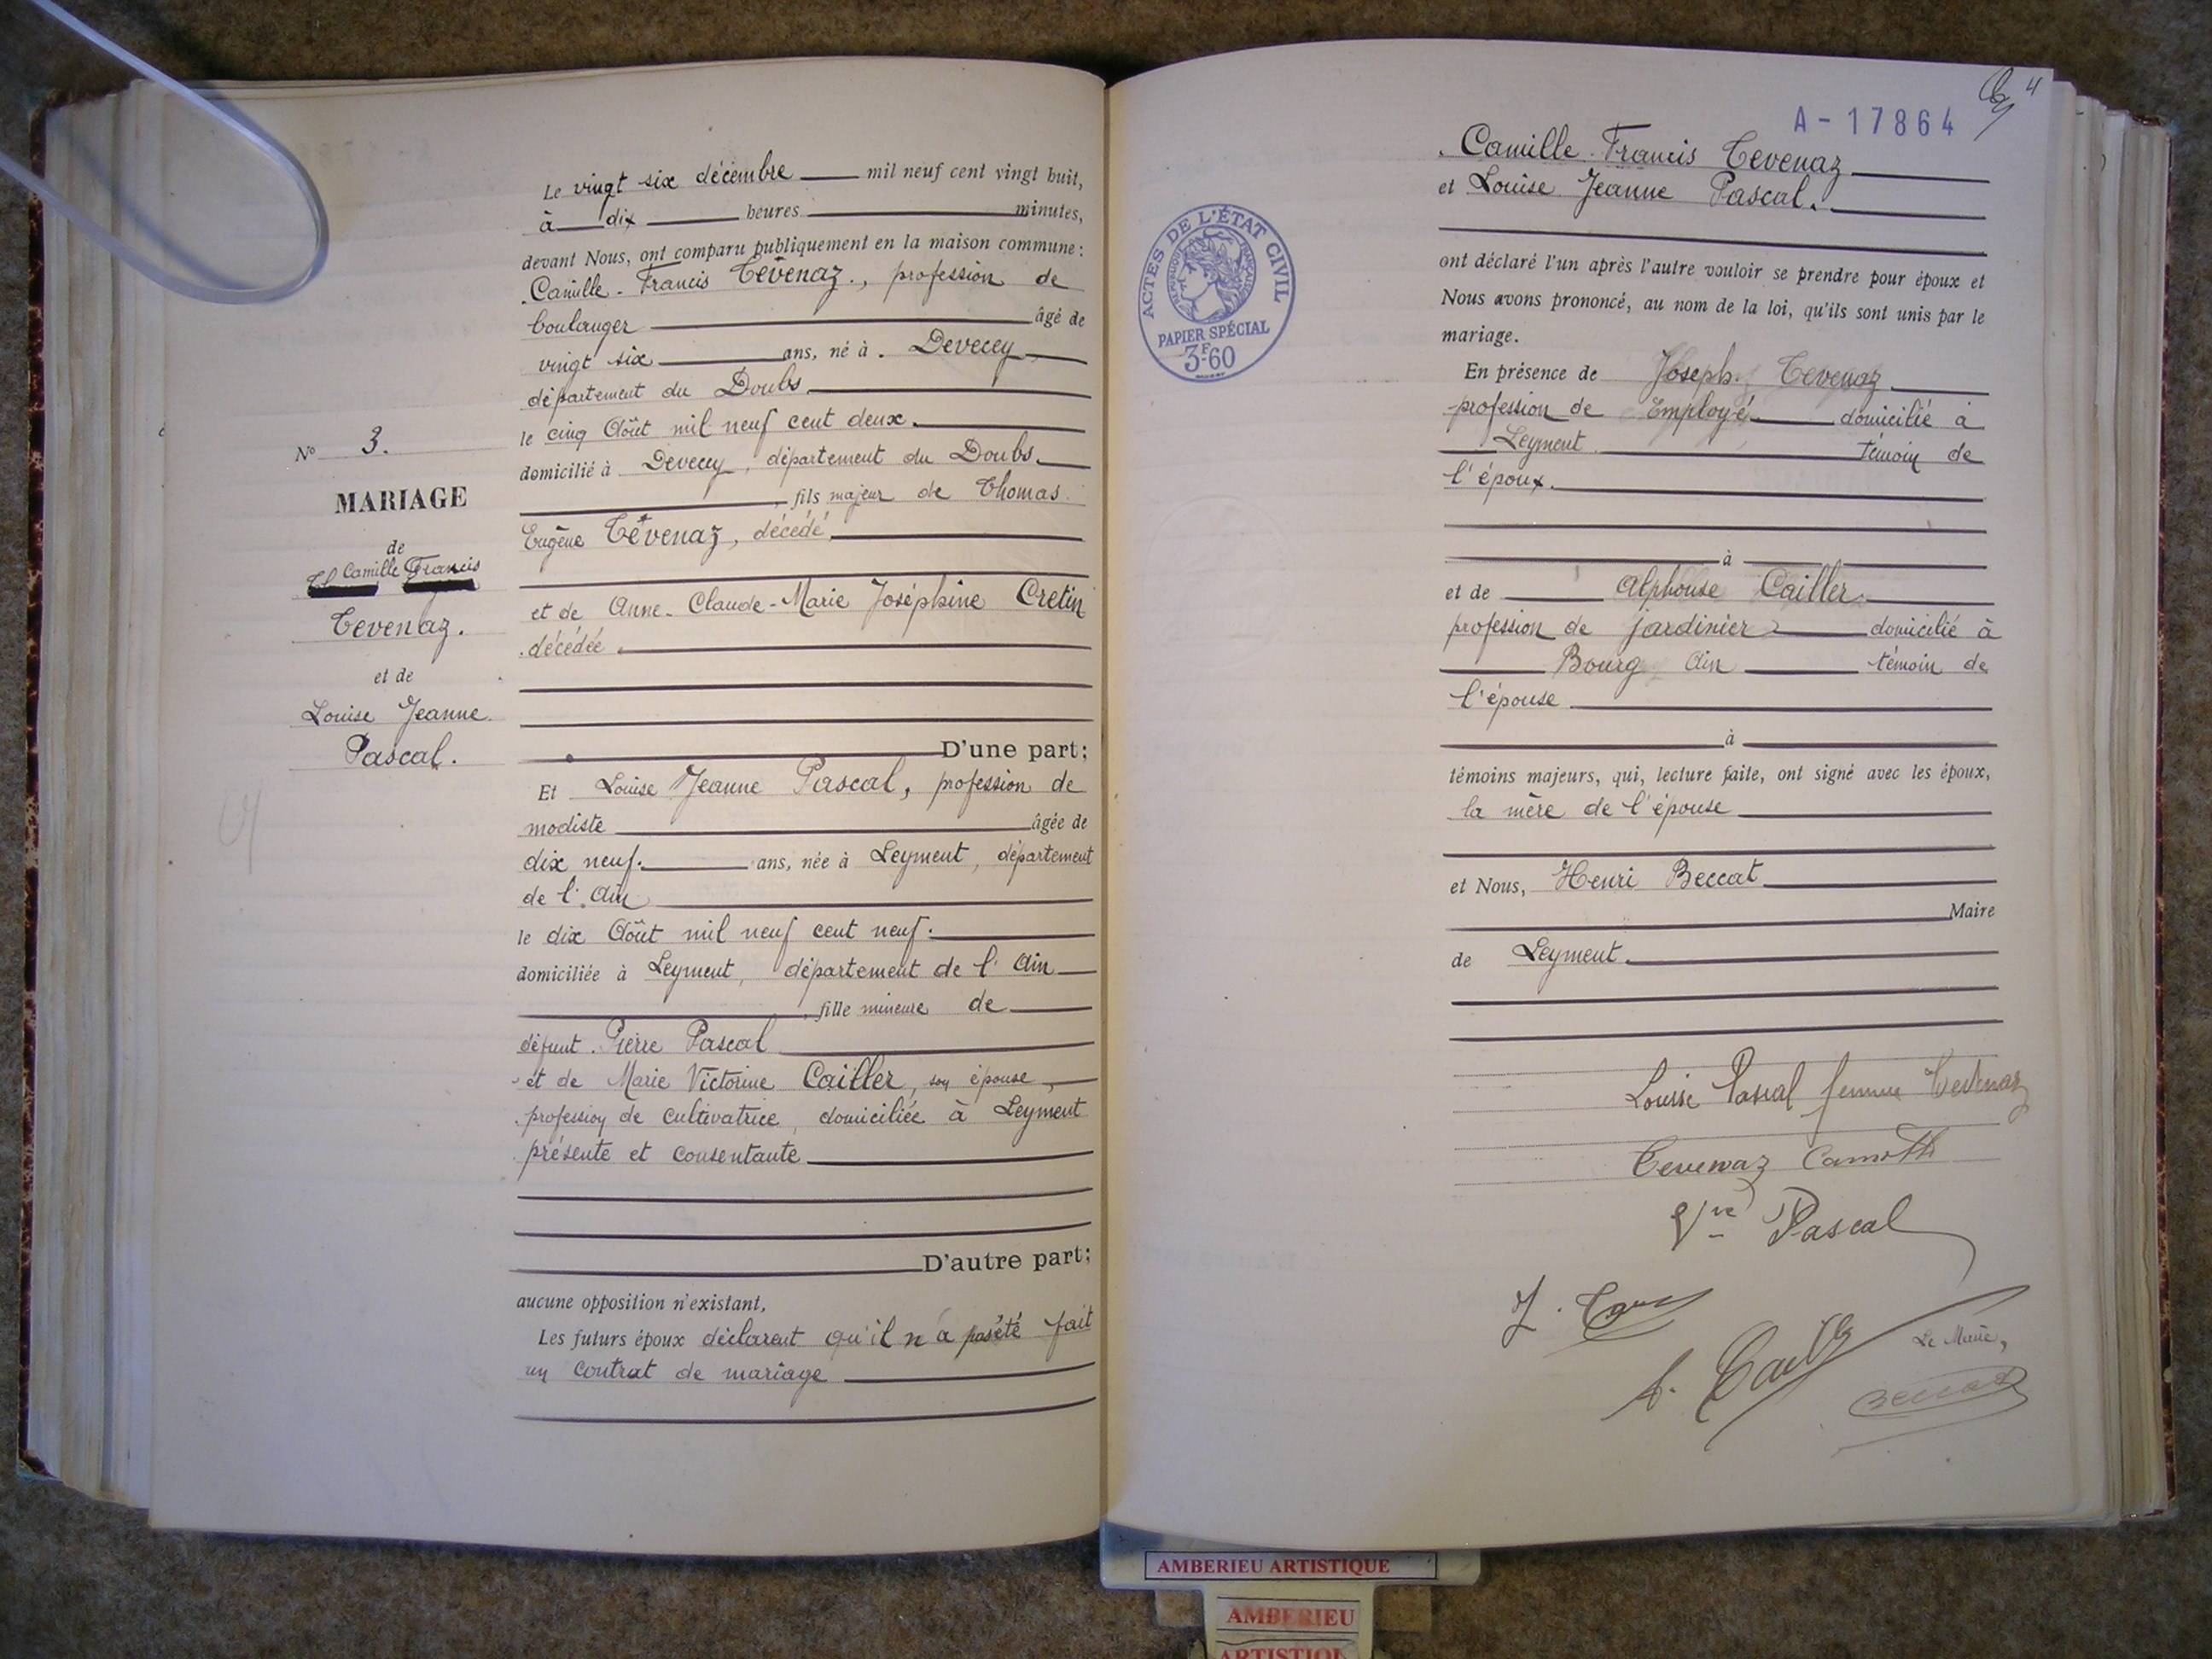 Le vingt six décembre mil neuf cent vingt huit,
à dix heures minutes,
devant Nous, ont comparu publiquement en la maison commune:
Camille-Francis Tévenaz, profession de
boulanger âgé de
vingt six ans, né à Devecey
département du Doubs
le cinq Août mil neuf cent deux.
domicilié à Devecey, département du Doubs.
, fils majeur de Thomas
Eugène Tévenaz, décédé
et de Anne-Claude-Marie Joséphine Cretin
décédée
D'une part;
Et Louise Jeanne Pascal, profession de
modiste âgée de
dix neuf. ans, née à Leyment, département
de l'Ain
le dix Août mil neuf cent neuf.
domiciliée à Leyment, département de l'Ain
, fille mineure de
défunt Pierre Pascal
et de Marie Victorine Cailler, son épouse,
profession de cultivatrice, domiciliée à Leyment
présente et consentante
D'autre part;
aucune opposition n'existant,
Les futurs époux déclarent qu'il n'a pas été fait
un contrat de mariage
No 3.
MARIAGE
de
Camille Francis
Tevenaz.
et de
Louise Jeanne
Pascal.
4
A-17864
Camille Francis Tevenaz
et Louise Jeanne Pascal.
ont déclaré l'un après l'autre vouloir se prendre pour époux et
Nous avons prononcé, au nom de la loi, qu'ils sont unis par le
mariage.
En présence de Joseph Tevenaz
profession de Employé domicilié à
Leyment témoin de
l'époux.
à
et de Alphonse Cailler
profession de jardinier domicilié à
Bourg Ain témoin de
l'épouse
à
témoins majeurs, qui, lecture faite, ont signé avec les époux,
la mère de l'épouse
et Nous, Henri Beccat
Maire
de Leyment.
Louise Pascal femme Tevenaz
Tevenaz Camille
Vve Pascal
Le Maire,
Beccat
ACTES DE L'ÉTAT CIVIL
RÉPUBLIQUE FRANÇAISE
PAPIER SPÉCIAL
3F60
AMBERIEU ARTISTIQUE
AMBERIEU
ARTISTIQUE